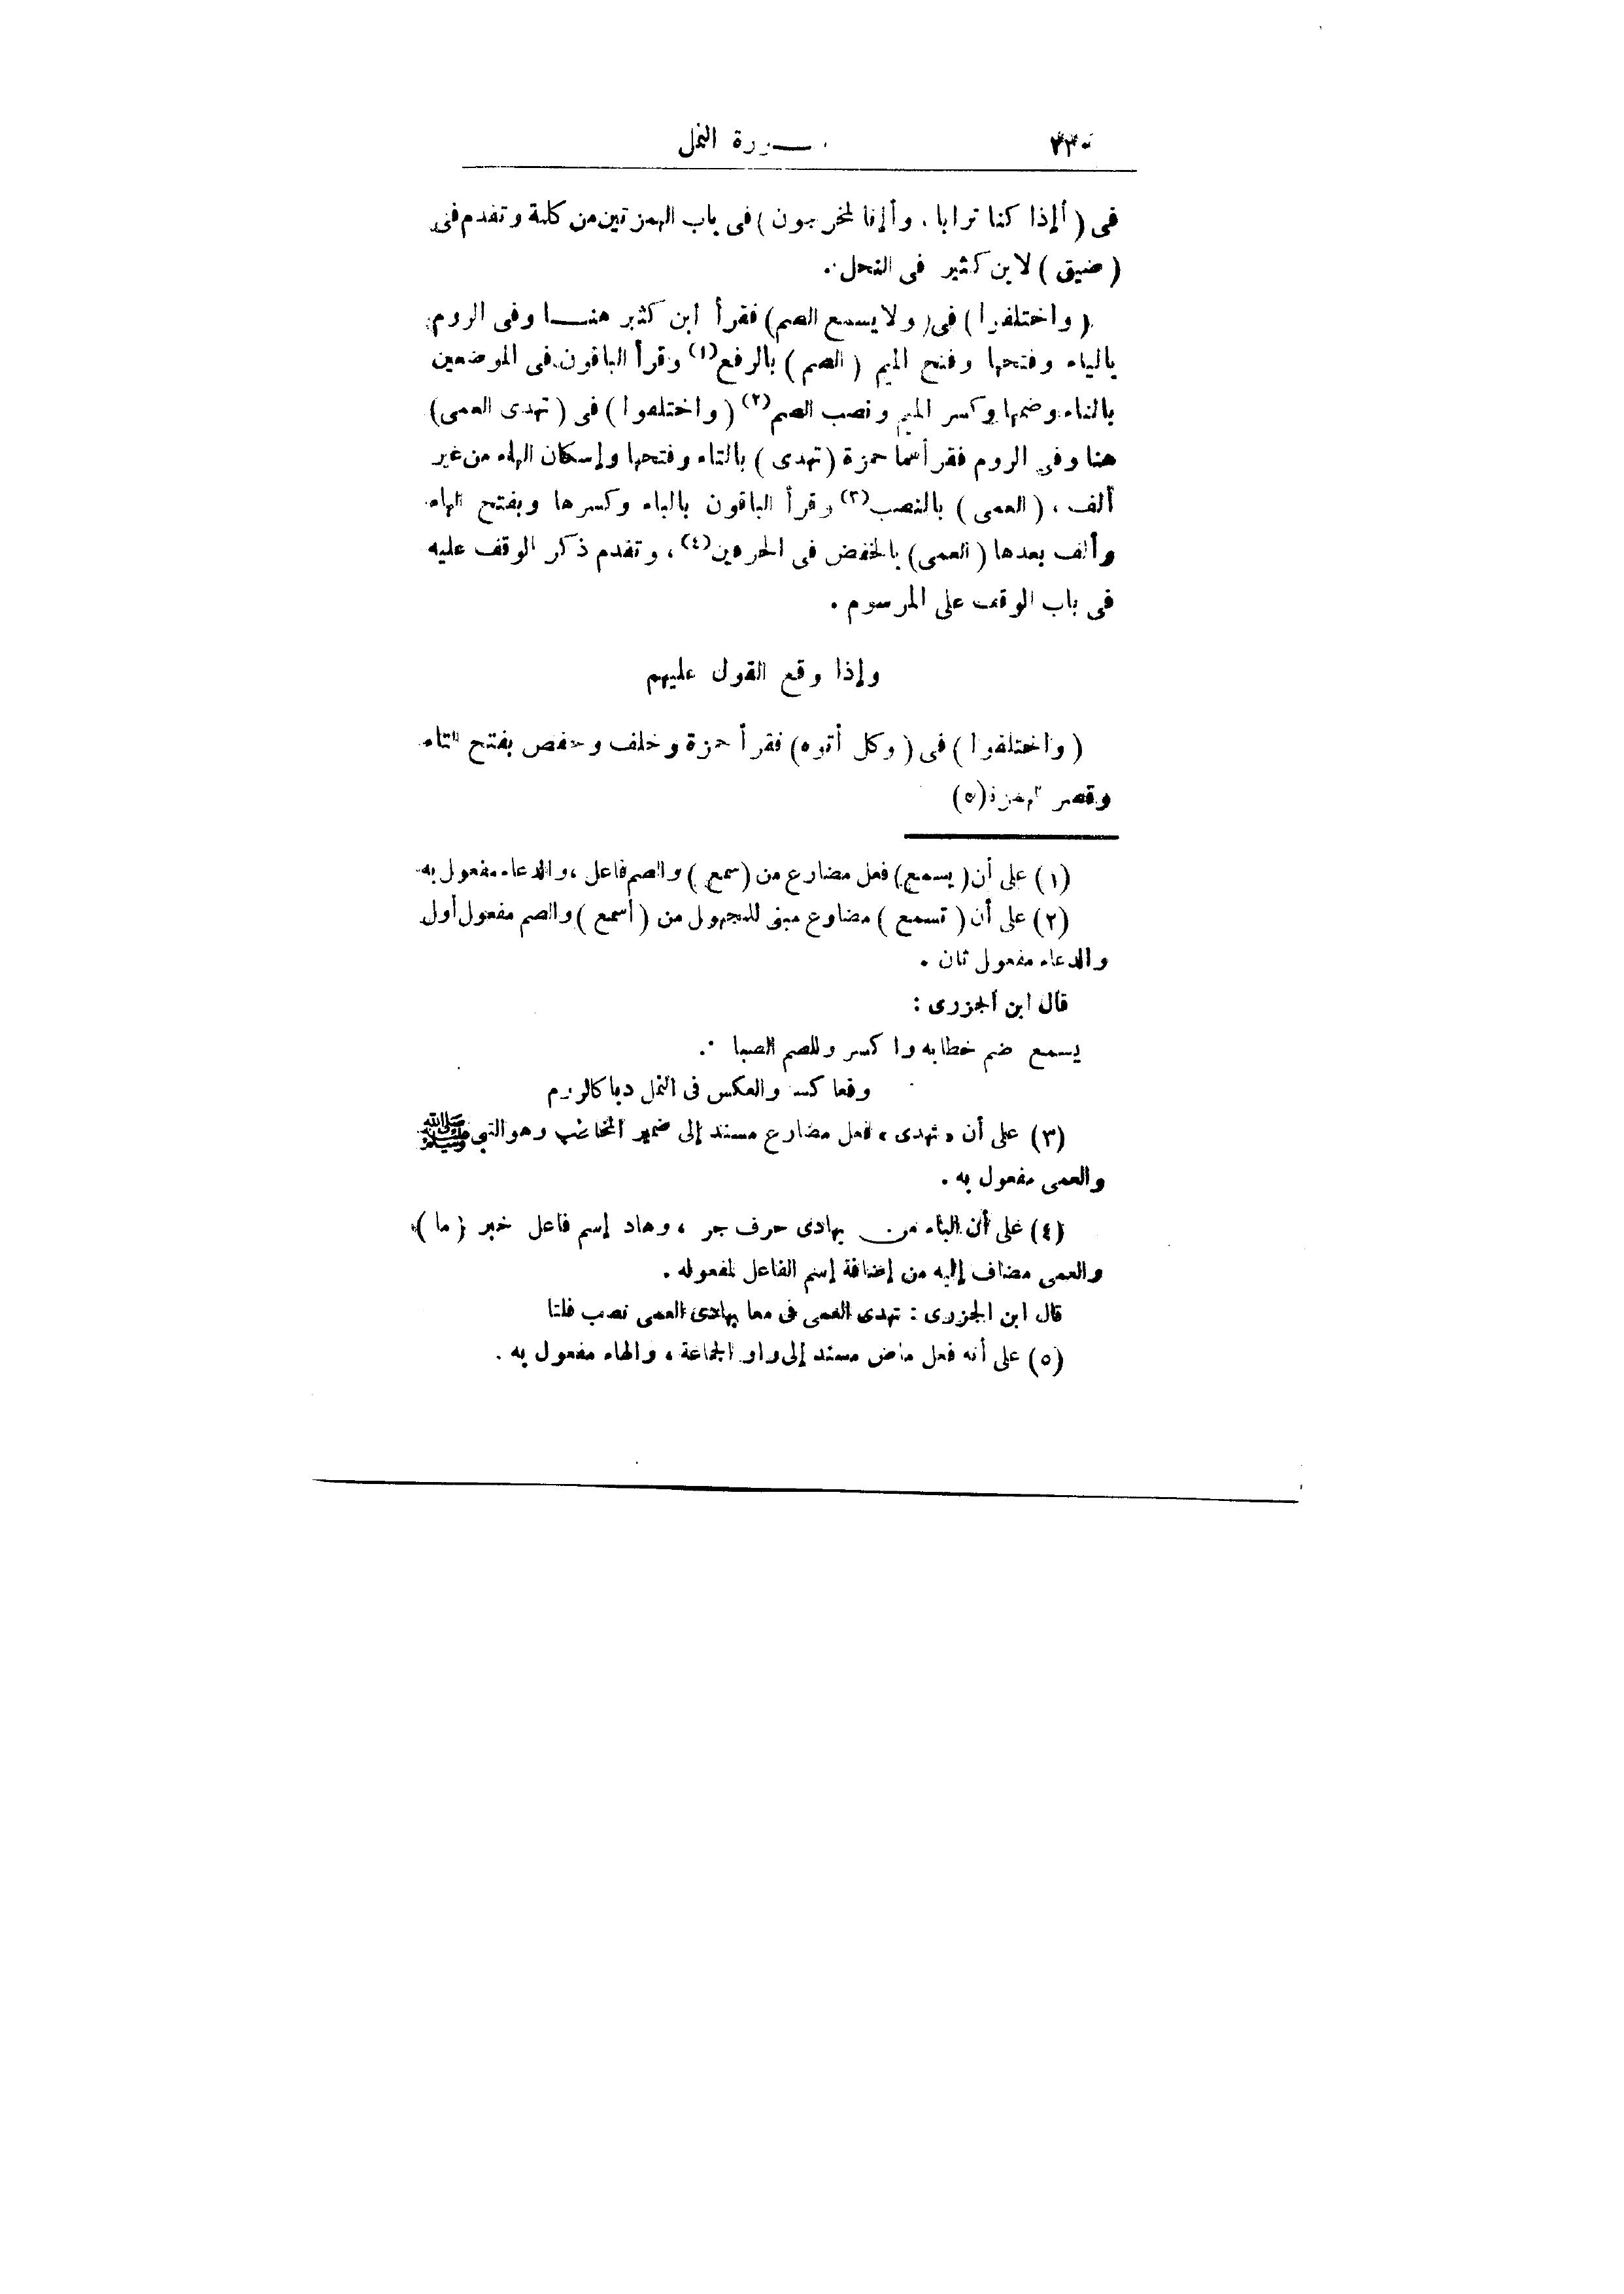 سورة النمل
في ( أإذا كنا ترابا ، وأإنا لمخرجون ) في باب الهمزتين من كلمة وتقدم في
( ضيق ) لابن كثير في النحل .
( واختلفوا ) في ( ولا يسمع الصم ) فقرأ ابن كثير هنا وفي الروم
بالياء وفتحها وفتح الميم ( الصم ) بالرفع (١) وقرأ الباقون في الموضعين
بالتاء وضمها وكسر الميم ونصب الصم (٢) ( واختلفوا ) في ( تهدى العمى )
هنا وفي الروم فقرأهما حمزة ( تهدى ) بالتاء وفتحها وإسكان الهاء من غير
ألف ، ( العمى ) بالنصب (٣) وقرأ الباقون بالباء وكسرها وبفتح الهاء
وألف بعدها ( العمى ) بالخفض في الحرفين (٤) ، وتقدم ذكر الوقف عليه
في باب الوقف على المرسوم .
وإذا وقع القول عليهم
( واختلفوا ) في ( وكل أتوه ) فقرأ حمزة وخلف وحفص بفتح التاء
وقصر الهمزة (٥)
(١) على أن ( يسمع ) فعل مضارع من ( سمع ) والصم فاعل ، والدعاء مفعول به
(٢) على أن ( تسمع ) مضارع مبنى للمجهول من ( أسمع ) والصم مفعول أول
والدعاء مفعول ثان .
قال ابن الجزرى :
يسمع ضم خطابه واكسر وللصم انصبا .
رفعا كسا والعكس في النمل دبا كالروم
(٣) على أن « تهدى » فعل مضارع مسند إلى ضمير المخاطب وهو النبي ﷺ
والعمى مفعول به .
(٤) على أن الباء من بهادى حرف جر ، وهاد إسم فاعل خبر ( ما )
والعمى مضاف إليه من إضافة إسم الفاعل لمفعوله .
قال ابن الجزرى : تهدى العمى في معا بهادى العمى نصب فلتا
(٥) على أنه فعل ماض مسند إلى واو الجماعة ، والهاء مفعول به .